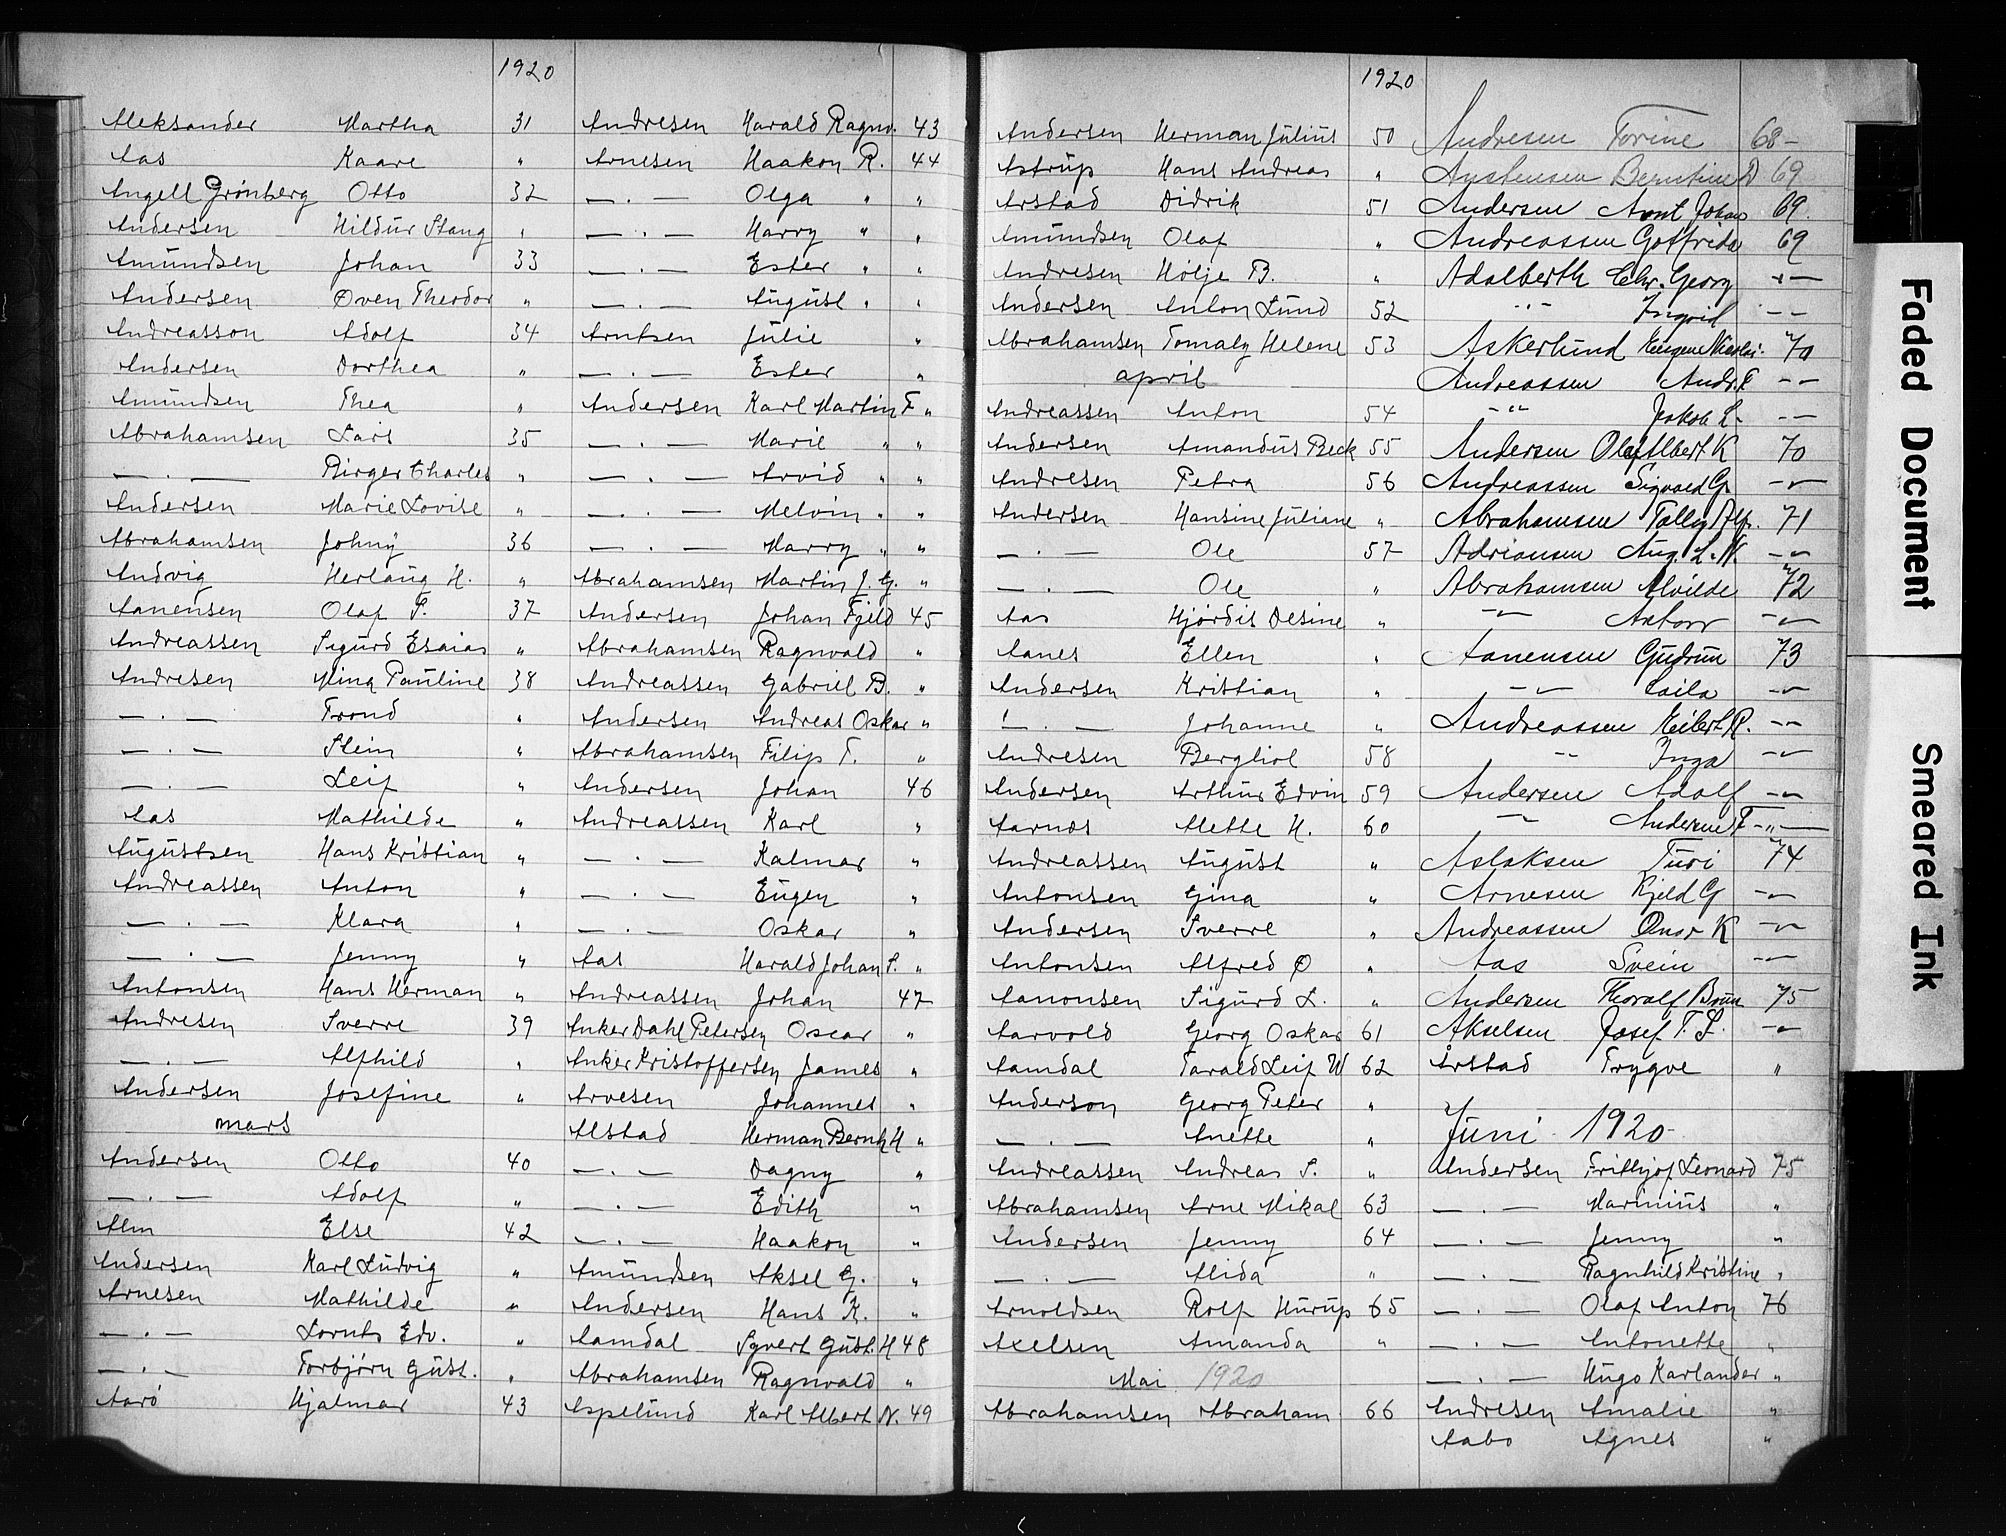 1920
Aleksander Martha 31
Aas Kaare "
Angell Grønberg Otto 32
Andersen Hildur Stang "
Amundsen Johan 33
Andersen Oven Theodor "
Andreasson Adolf 34
Andersen Dorthea "
Amundsen Thea "
Abrahamsen Lars 35
— . — Birger Charles "
Andersen Marie Lovise "
Abrahamsen Johny 36
Andvig Herlaug H. "
Aanensen Olaf S. 37
Andreassen Sigurd Esaias "
Andresen Mina Pauline 38
— . — Trond "
— . — Stein "
— . — Leif "
Aas Mathilde "
Augustsen Hans Kristian "
Andreassen Anton "
— . — Klara "
— . — Jenny "
Antonsen Hans Herman "
Andresen Sverre 39
— . — Alfhild "
Andersen Josefine "
mars
Andersen Otto 40
— . — Adolf "
Alm Else 42
Andersen Karl Ludvig "
Arnesen Mathilde "
— . — Lornts Edv. "
— . — Torbjørn Gust. "
Aarø Hjalmar 43
Andresen Harald Ragnv. 43
Arnesen Haakon R. 44
— . — Olga " "
— . — Harry " "
— . — Ester " "
— . — August " "
Arntsen Julie "
— . — Ester "
Andersen Karl Martin F "
— . — Marie " "
— . — Arvid " "
— . — Melvin " "
— . — Harry " "
Abrahamsen Martin J. G. "
Andersen Johan Fjeld 45
Abrahamsen Ragnvald "
Andreassen Gabriel B. "
Andersen Andreas Oskar "
Abrahamsen Filip T. "
Andersen Johan 46
Andreassen Karl "
— . — Kalmar "
— . — Eugen "
— . — Oskar "
Aas Harald Johan S. "
Andreassen Johan 47
Anker Dahl Petersen Oscar "
Anker Kristoffersen James "
Arvesen Johannes "
Alstad Herman Bernh H "
— . — Dagny "
— . — Edith "
— . — Haakon "
Amundsen Aksel G. "
Andersen Hans K. "
Aamdal Syvert Gust. H 48
Abrahamsen Ragnvald "
Aspelund Karl Albert N. 49
1920
Andersen Herman Julius 50
Astrup Hans Andreas "
Arstad Didrik 51
Amundsen Olaf "
Andresen Holje B. "
Andersen Anton Lund 52
Abrahamsen Tomaly Helene 53
april
Andreassen Anton 54
Andersen Amandus Beck 55
Andresen Petra 56
Andersen Hansine Juliane "
— . — Ole 57
— . — Ole "
Aas Hjørdis Desine "
Aanes Ellen "
Andersen Kristian "
— . — Johanne "
Andresen Bergliot 58
Andersen Arthur Edvin 59
Aarnes Mette H. 60
Andreassen August "
Antonsen Gina "
Andersen Sverre "
Antonsen Alfred Ø "
Aanonsen Sigurd L. "
Aarvold Georg Oskar 61
Aamdal Tarald Leif W 62
Anderson Georg Peter "
— . — Anette "
Andreassen Andreas S. "
Abrahamsen Arne Mikal 63
Andersen Jenny 64
— . — Alida "
Arnoldsen Rolf Hurup 65
Axelsen Amanda "
Mai 1920
Abrahamsen Abraham 66
Andresen Torine 68 -
Austensen Berntine D 69
Andersen Arnt Johan 69.
Andreassen Gotfrida 69
Adalberth Chr. Georg — " —
" Ingrid - -
Askerlund Nicolai 70
Andreassen Andr. F. - -
- " - Jakob L. - -
Andersen Olaf Albert K 70
Andreassen Sigvald G. — " —
Abrahamsen Talley Alf. 71
Adriansen Aug. L. N. — " —
Abrahamsen Alvilde 72
— " — — " —
Aanensen Gudrun 73
— " — Laila — " —
Andreassen R. — " —
— " — Inga — " —
Andersen Adolf — " —
— " — Andersen F — " —
Aslaksen Turi 74
Arnesen Kjeld G — " —
Andreassen K — " —
Aas Svein — " —
Andersen Thoralf Brun 75
Akselsen Josef T. S. — " —
Årstad Trygve "
Juni 1920
Andersen Frithjof Leonard 75
— . — Marinius "
— . — Jenny "
— . — Ragnhild Kristine "
— . — Olaf Anton 76
— . — Antonette "
— . — Hugo Karlander "
Andresen Amalie "
Aabo Agnes "
Faded Document
Smeared Ink